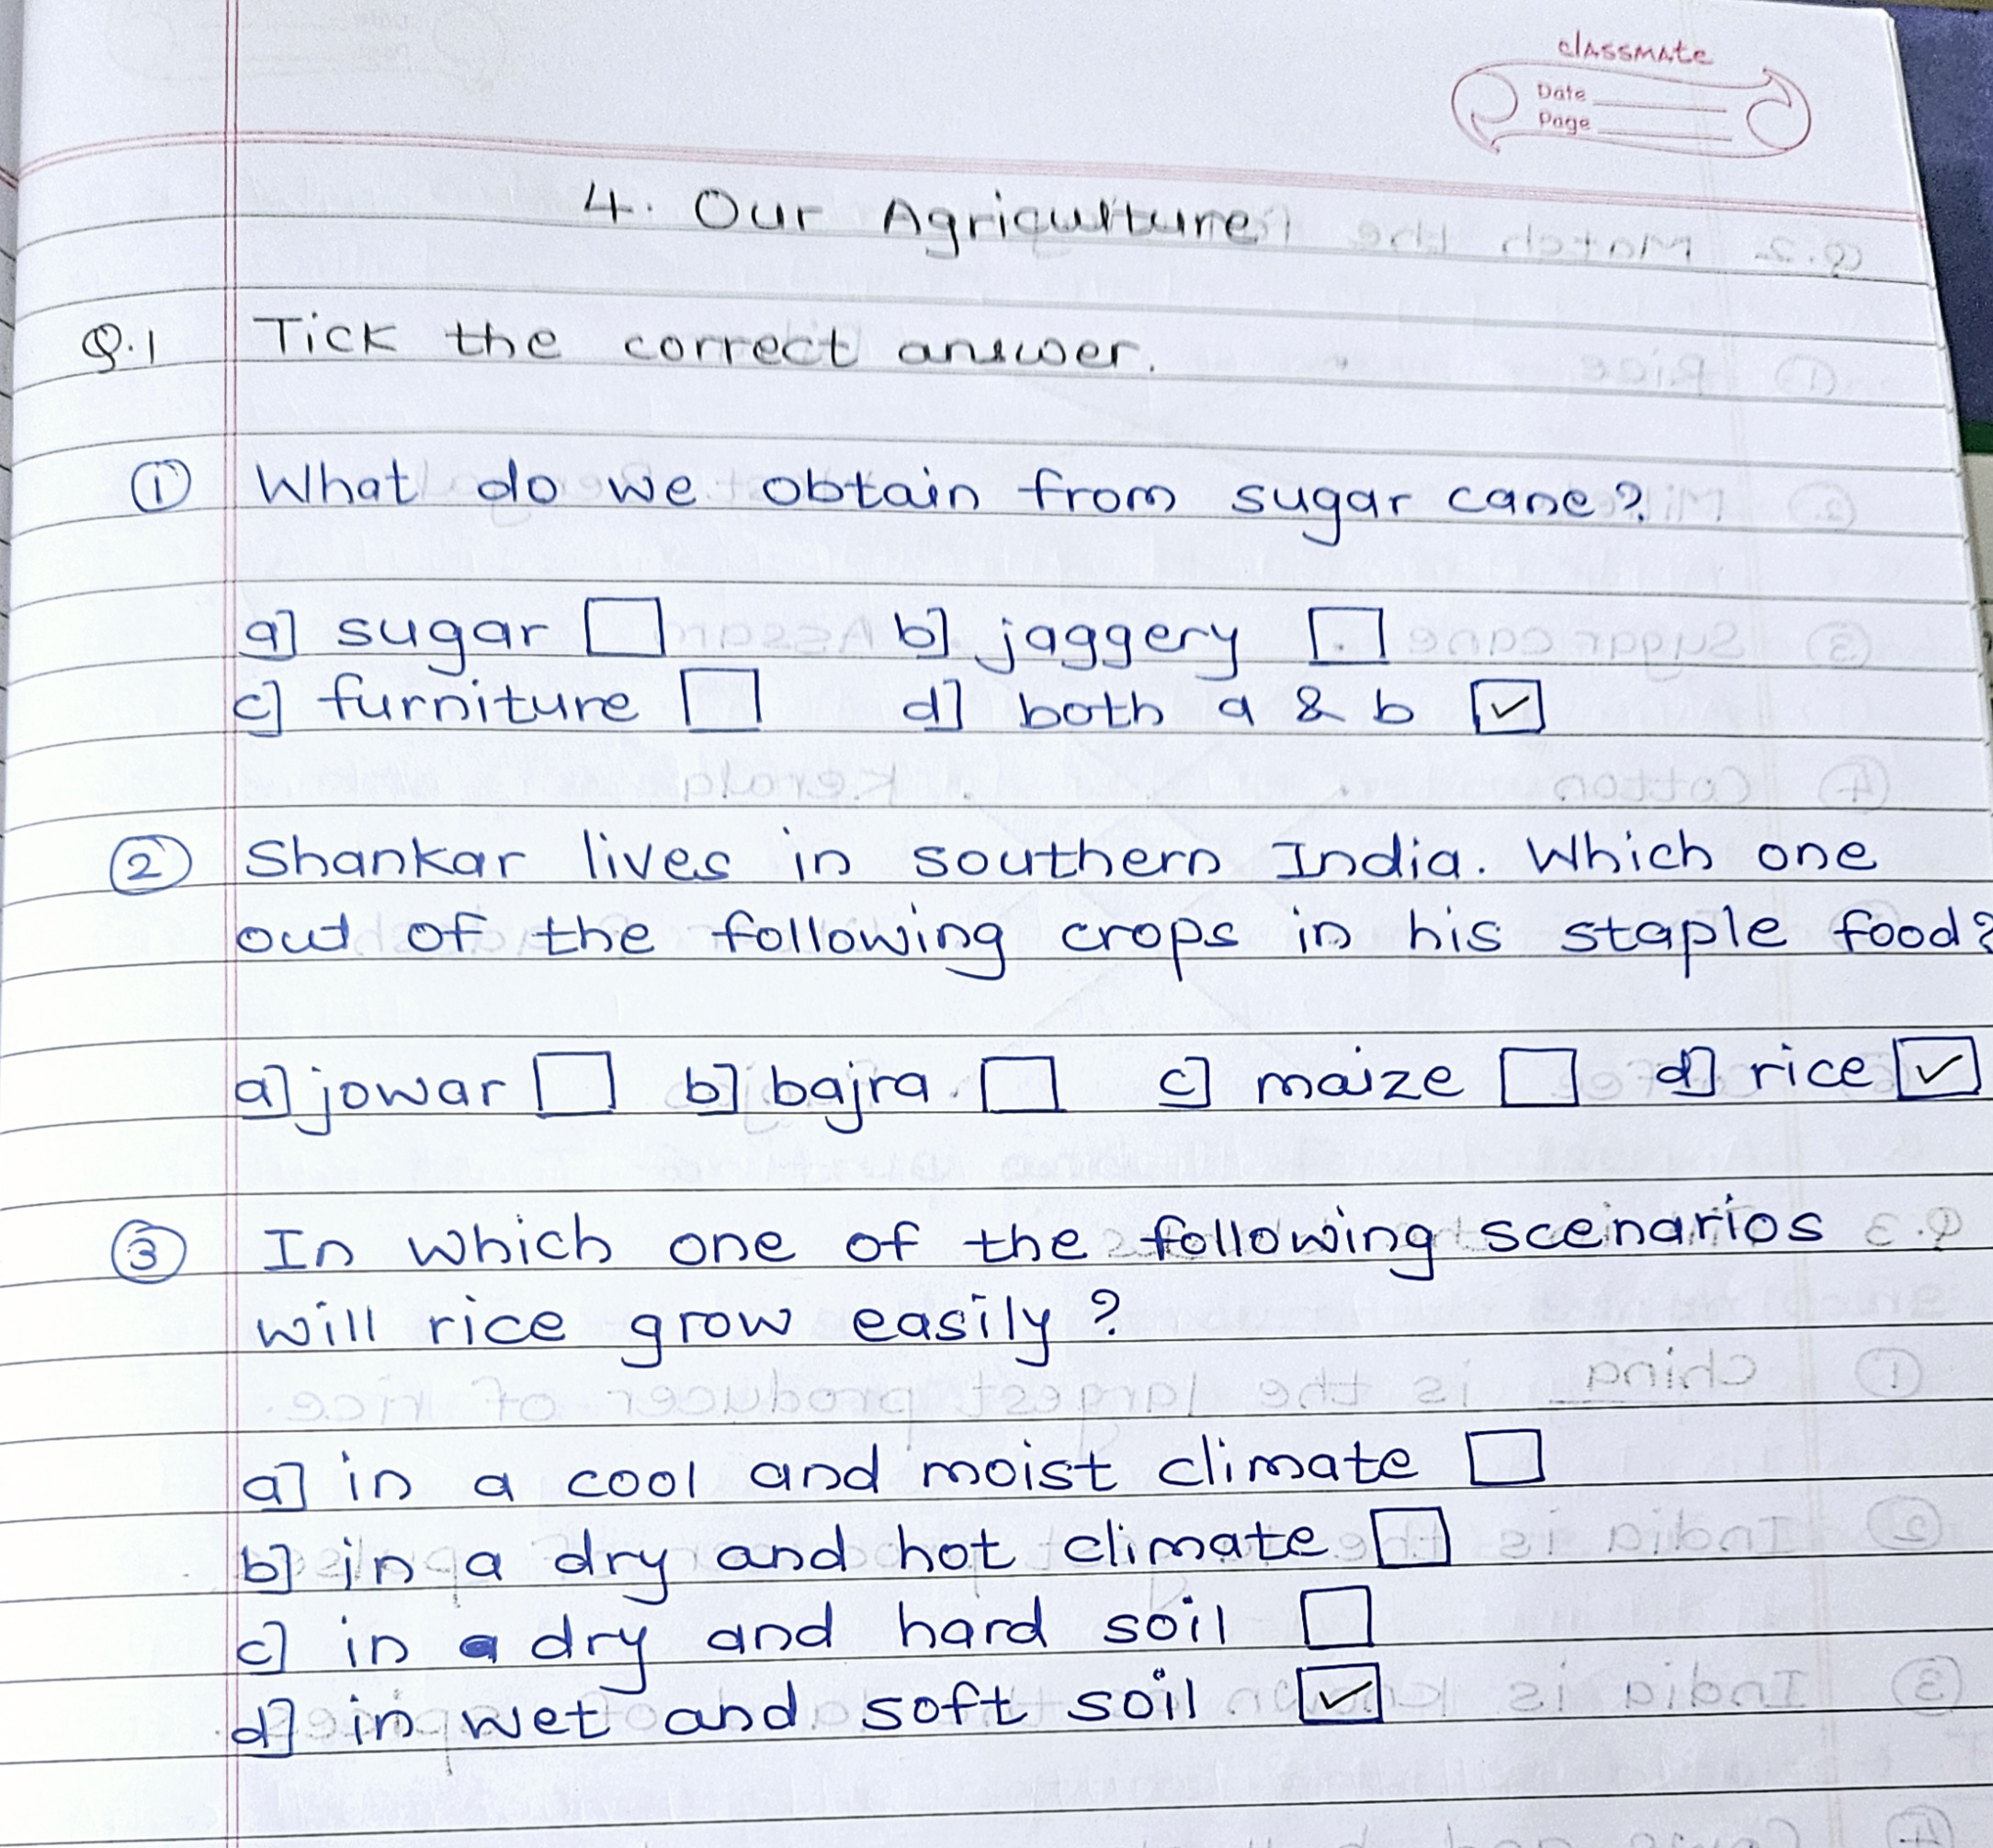 classmate
Date
Page
4. Our Agriculture
Q.1 Tick the correct answer.
① What do we obtain from sugar cane?
a] sugar ☐ b] jaggery ☐
c] furniture ☐ d] both a & b ☑
② Shankar lives in southern India. Which one
out of the following crops in his staple food?
a] jowar ☐ b] bajra ☐ c] maize ☐ d] rice ☑
③ In which one of the following scenarios
will rice grow easily?
a] in a cool and moist climate ☐
b] in a dry and hot climate ☐
c] in a dry and hard soil ☐
d] in wet and soft soil ☑